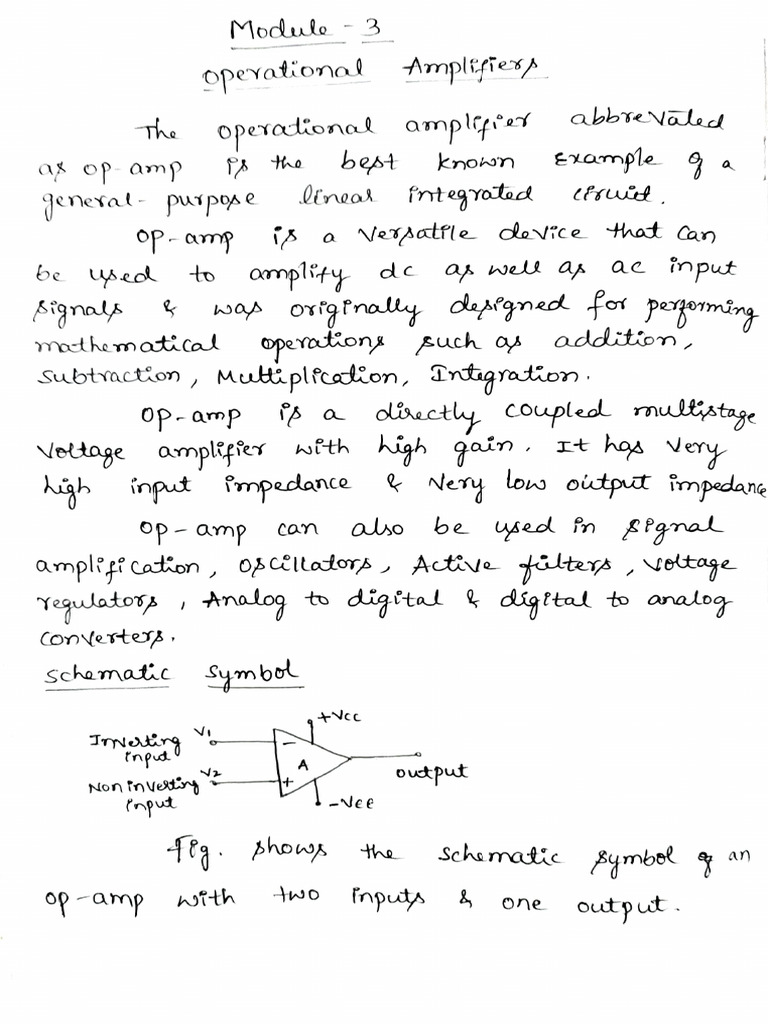 Module - 3
Operational Amplifiers
The operational amplifier abbrevated
as op-amp is the best known Example of a
general-purpose linear integrated circuit.
Op-amp is a versatile device that can
be used to amplify dc as well as ac input
signals & was originally designed for performing
mathematical operations such as addition,
subtraction, Multiplication, Integration.
Op-amp is a directly coupled multistage
voltage amplifier with high gain. It has very
high input impedance & very low output impedance
Op-amp can also be used in signal
amplification, oscillators, Active filters, voltage
regulators, Analog to digital & digital to analog
converters.
Schematic Symbol
+Vcc
Inverting input V1
-
A
output
Non inverting input V2
+
-VEE
Fig. shows the schematic symbol of an
op-amp with two inputs & one output.